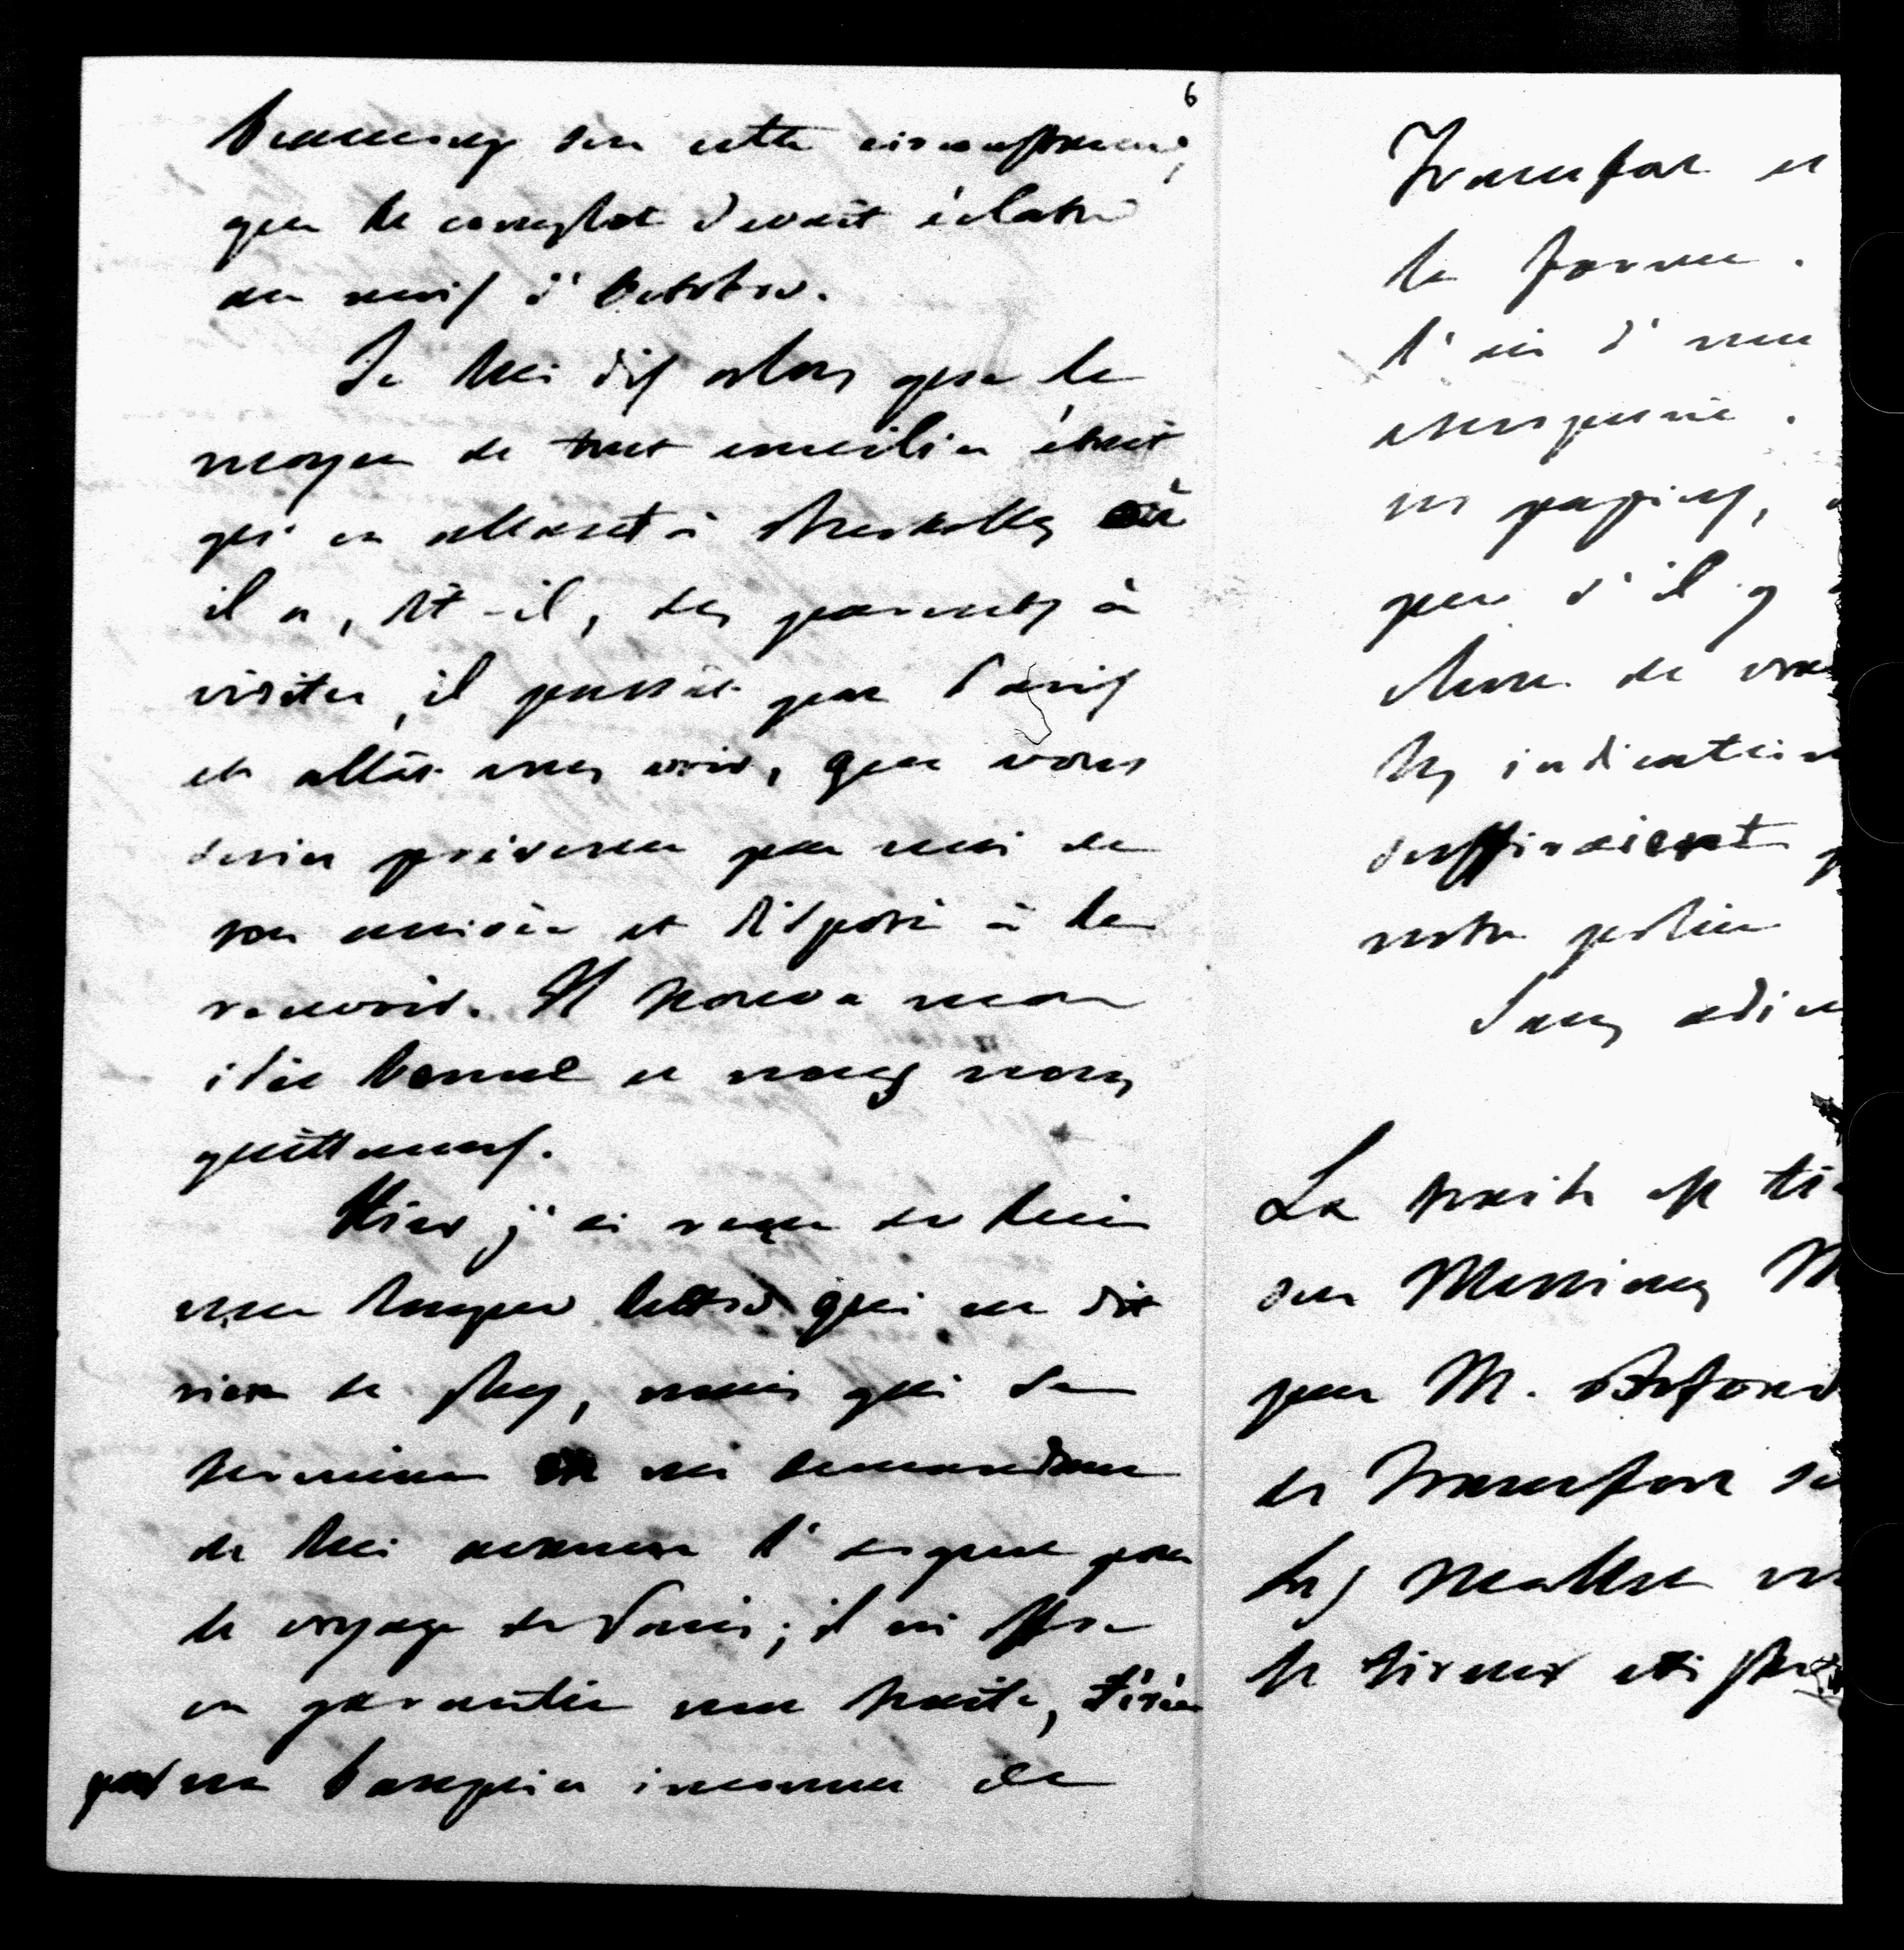 6
beaucoup sur cette circonstance,
que le complot devait éclater
au mois d'Octobre.
Je lui dis alors que le
moyen de tout concilier était
qu'en allant à Bruxelles où
il a, dit-il, des parents à
visiter, il passât par Paris
et allât vous voir, que vous
seriez prévenu par moi de
son arrivée et disposé à le
recevoir. Il trouva mon
idée bonne et nous nous
quittâmes.
Hier j'ai reçu de lui
une longue lettre qui ne dit
rien de plus, mais qui se
termine en me demandant
de lui avancer l'argent pour
le voyage de Paris; il m'offre
en garantie une traite, tirée
par un banquier inconnu de
Francfort et
la forme.
l'ai d'une
ces papiers,
que s'il y
chose de vrai
les indications
suffiraient
notre police
Sans adieu
La traite est tirée
sur Messieurs M
par M.
de Francfort